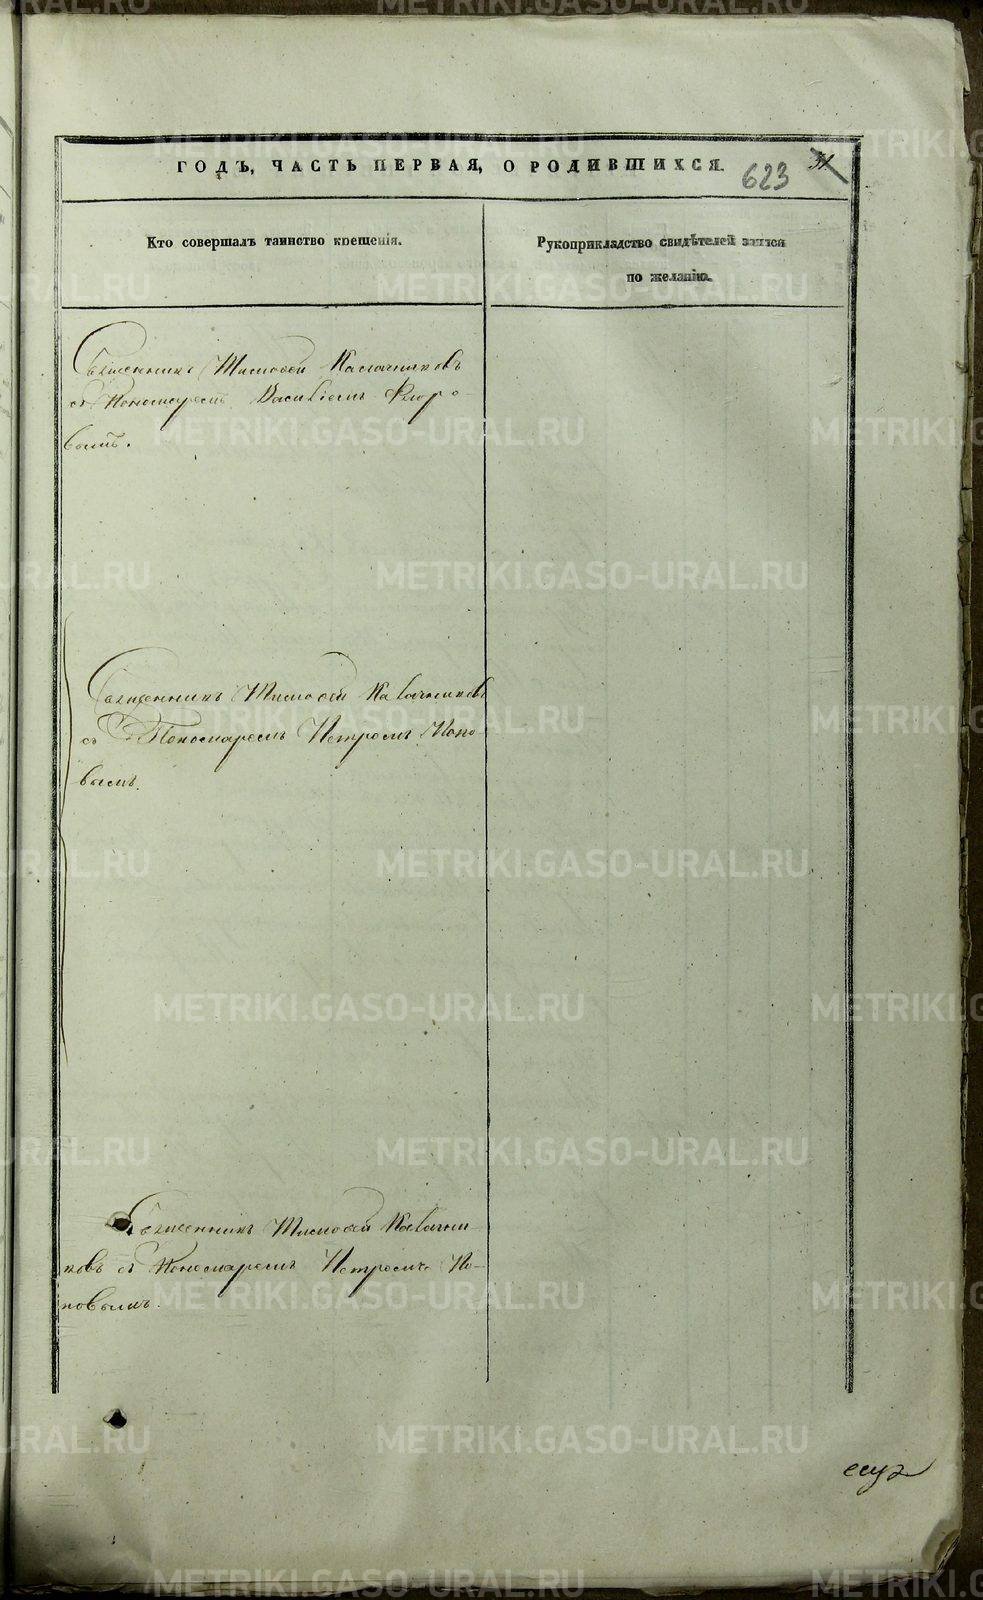 ГОДЪ, ЧАСТЬ ПЕРВАЯ, О РОДИВШИХСЯ.
623
31
Кто совершалъ таинство крещенія.
Рукоприкладство свидѣтелей записи
по желанію.
Священникъ Тимофей Калачниковъ
съ Пономаремъ Василіемъ Флоро-
вымъ.
Священникъ Тимофей Калачниковъ
съ Пономаремъ Петромъ Попо
вымъ.
Священникъ Тимофей Калачни-
ковъ съ Пономаремъ Петромъ По-
повымъ.
METRIKI.GASO-URAL.RU